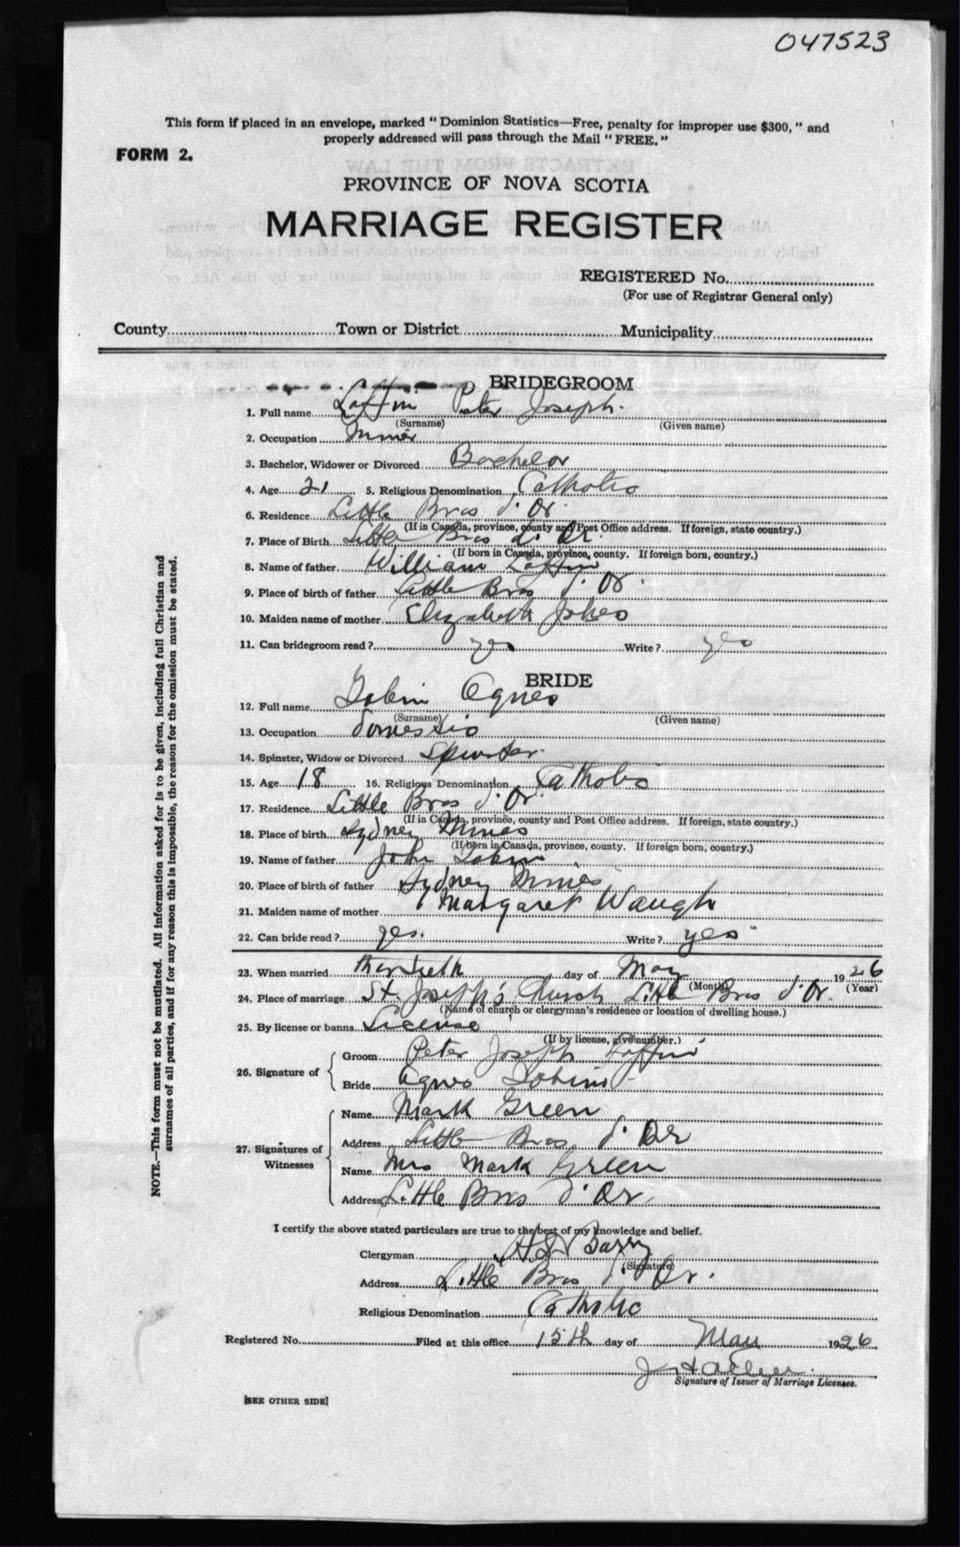 047523
This form if placed in an envelope, marked "Dominion Statistics—Free, penalty for improper use $300," and
properly addressed will pass through the Mail "FREE."
FORM 2.
PROVINCE OF NOVA SCOTIA
MARRIAGE REGISTER
REGISTERED No.
(For use of Registrar General only)
County Town or District Municipality
BRIDEGROOM
1. Full name Laffin Peter Joseph.
(Surname) (Given name)
2. Occupation Miner
3. Bachelor, Widower or Divorced Bachelor
4. Age 21 5. Religious Denomination Catholic
6. Residence Little Bras d'Or
(If in Canada, province, county and Post Office address. If foreign, state country.)
7. Place of Birth Little Bras d'Or.
(If born in Canada, province, county. If foreign born, country.)
8. Name of father William Laffin
9. Place of birth of father Little Bras d'Or
10. Maiden name of mother Elizabeth
11. Can bridegroom read? yes Write? yes
BRIDE
12. Full name Tobin Agnes
(Surname) (Given name)
13. Occupation Domestic
14. Spinster, Widow or Divorced Spinster
15. Age 18 16. Religious Denomination Catholic
17. Residence Little Bras d'Or
(If in Canada, province, county and Post Office address. If foreign, state country.)
18. Place of birth Sydney Mines
(If born in Canada, province, county. If foreign born, country.)
19. Name of father John Tobin
20. Place of birth of father Sydney Mines
21. Maiden name of mother Margaret Waugh
22. Can bride read? yes. Write? yes
23. When married day of May 1926
(Month) (Year)
24. Place of marriage St. Joseph's Church Little Bras d'Or.
(Name of church or clergyman's residence or location of dwelling house.)
25. By license or banns License
(If by license, give number.)
26. Signature of
Groom Peter Joseph Laffin
Bride Agnes Tobin
27. Signatures of Witnesses
Name Mark Green
Address Little Bras d'Or
Name Mrs Mark Green
Address Little Bras d'Or
I certify the above stated particulars are true to the best of my knowledge and belief.
Clergyman Barry
(Signature)
Address Little Bras d'Or.
Religious Denomination Catholic
Registered No. Filed at this office 15th day of May 1926
Signature of Issuer of Marriage Licenses.
[SEE OTHER SIDE]
NOTE.—This form must not be mutilated. All information asked for is to be given, including full Christian and
surnames of all parties, and if for any reason this is impossible, the reason for the omission must be stated.